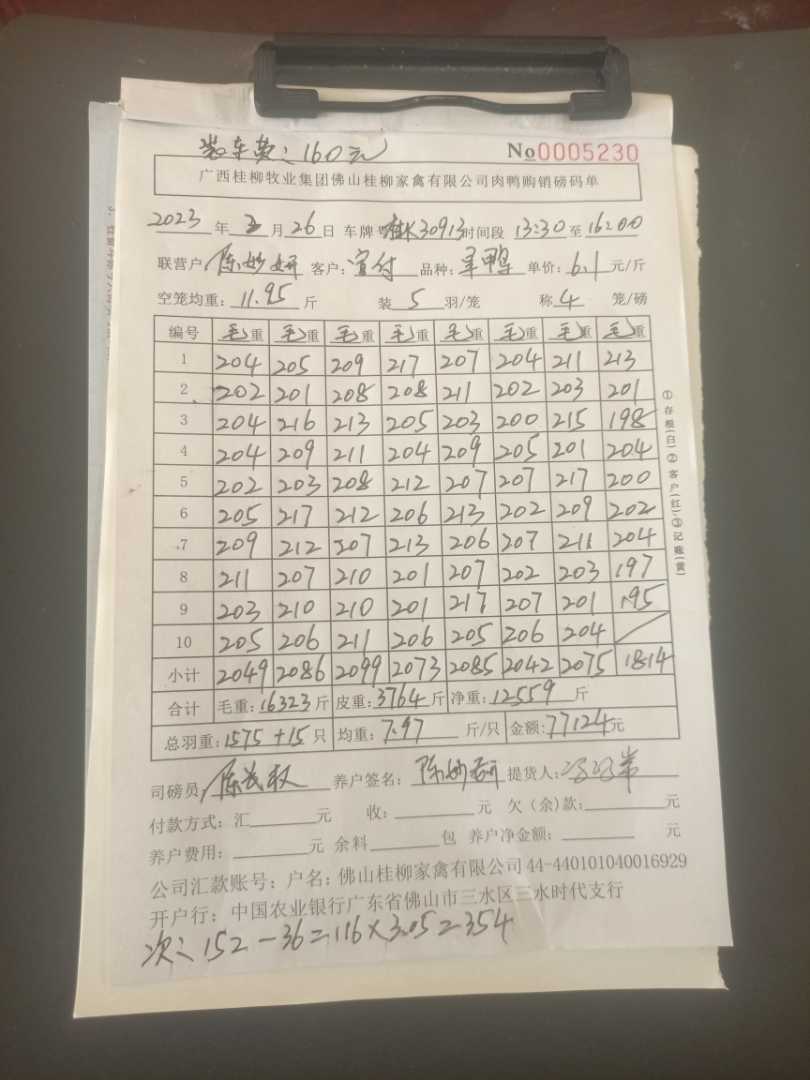 装车费:160元
No0005230
广西桂柳牧业集团佛山桂柳家禽有限公司肉鸭购销磅码单
2023年 月26日 车牌 桂K30913时间段 13:30至16:00
联营户 陈妙妍 客户: 品种: 鸭 单价:6.1元/斤
空笼均重:11.95斤 装5羽/笼 称4笼/磅
编号 毛重 毛重 毛重 毛重 毛重 毛重 毛重 毛重
1 204 205 209 217 207 204 211 213
2 202 201 208 208 211 202 203 201
3 204 216 213 205 203 200 215 198
4 204 209 211 204 209 205 201 204
5 202 203 208 212 207 207 217 200
6 205 217 212 206 213 202 209 202
7 209 212 207 213 206 207 211 204
8 211 207 210 201 207 202 203 197
9 203 210 210 201 217 207 201 195
10 205 206 211 206 205 206 204
小计 2049 2086 2099 2073 2085 2042 2075 1814
合计 毛重:16323斤 皮重:3764斤 净重:12559斤
总羽重:1575+15只 均重:7.97斤/只 金额:77124元
司磅员 养户签名:陈妙妍 提货人:
付款方式:汇 元 收: 元 欠(余)款: 元
养户费用: 元 余料 包 养户净金额: 元
公司汇款账号:户名:佛山桂柳家禽有限公司44-440101040016929
开户行:中国农业银行广东省佛山市三水区三水时代支行
次:152-36=116×3.05=354
①存根(白)②客户(红)③记账(黄)